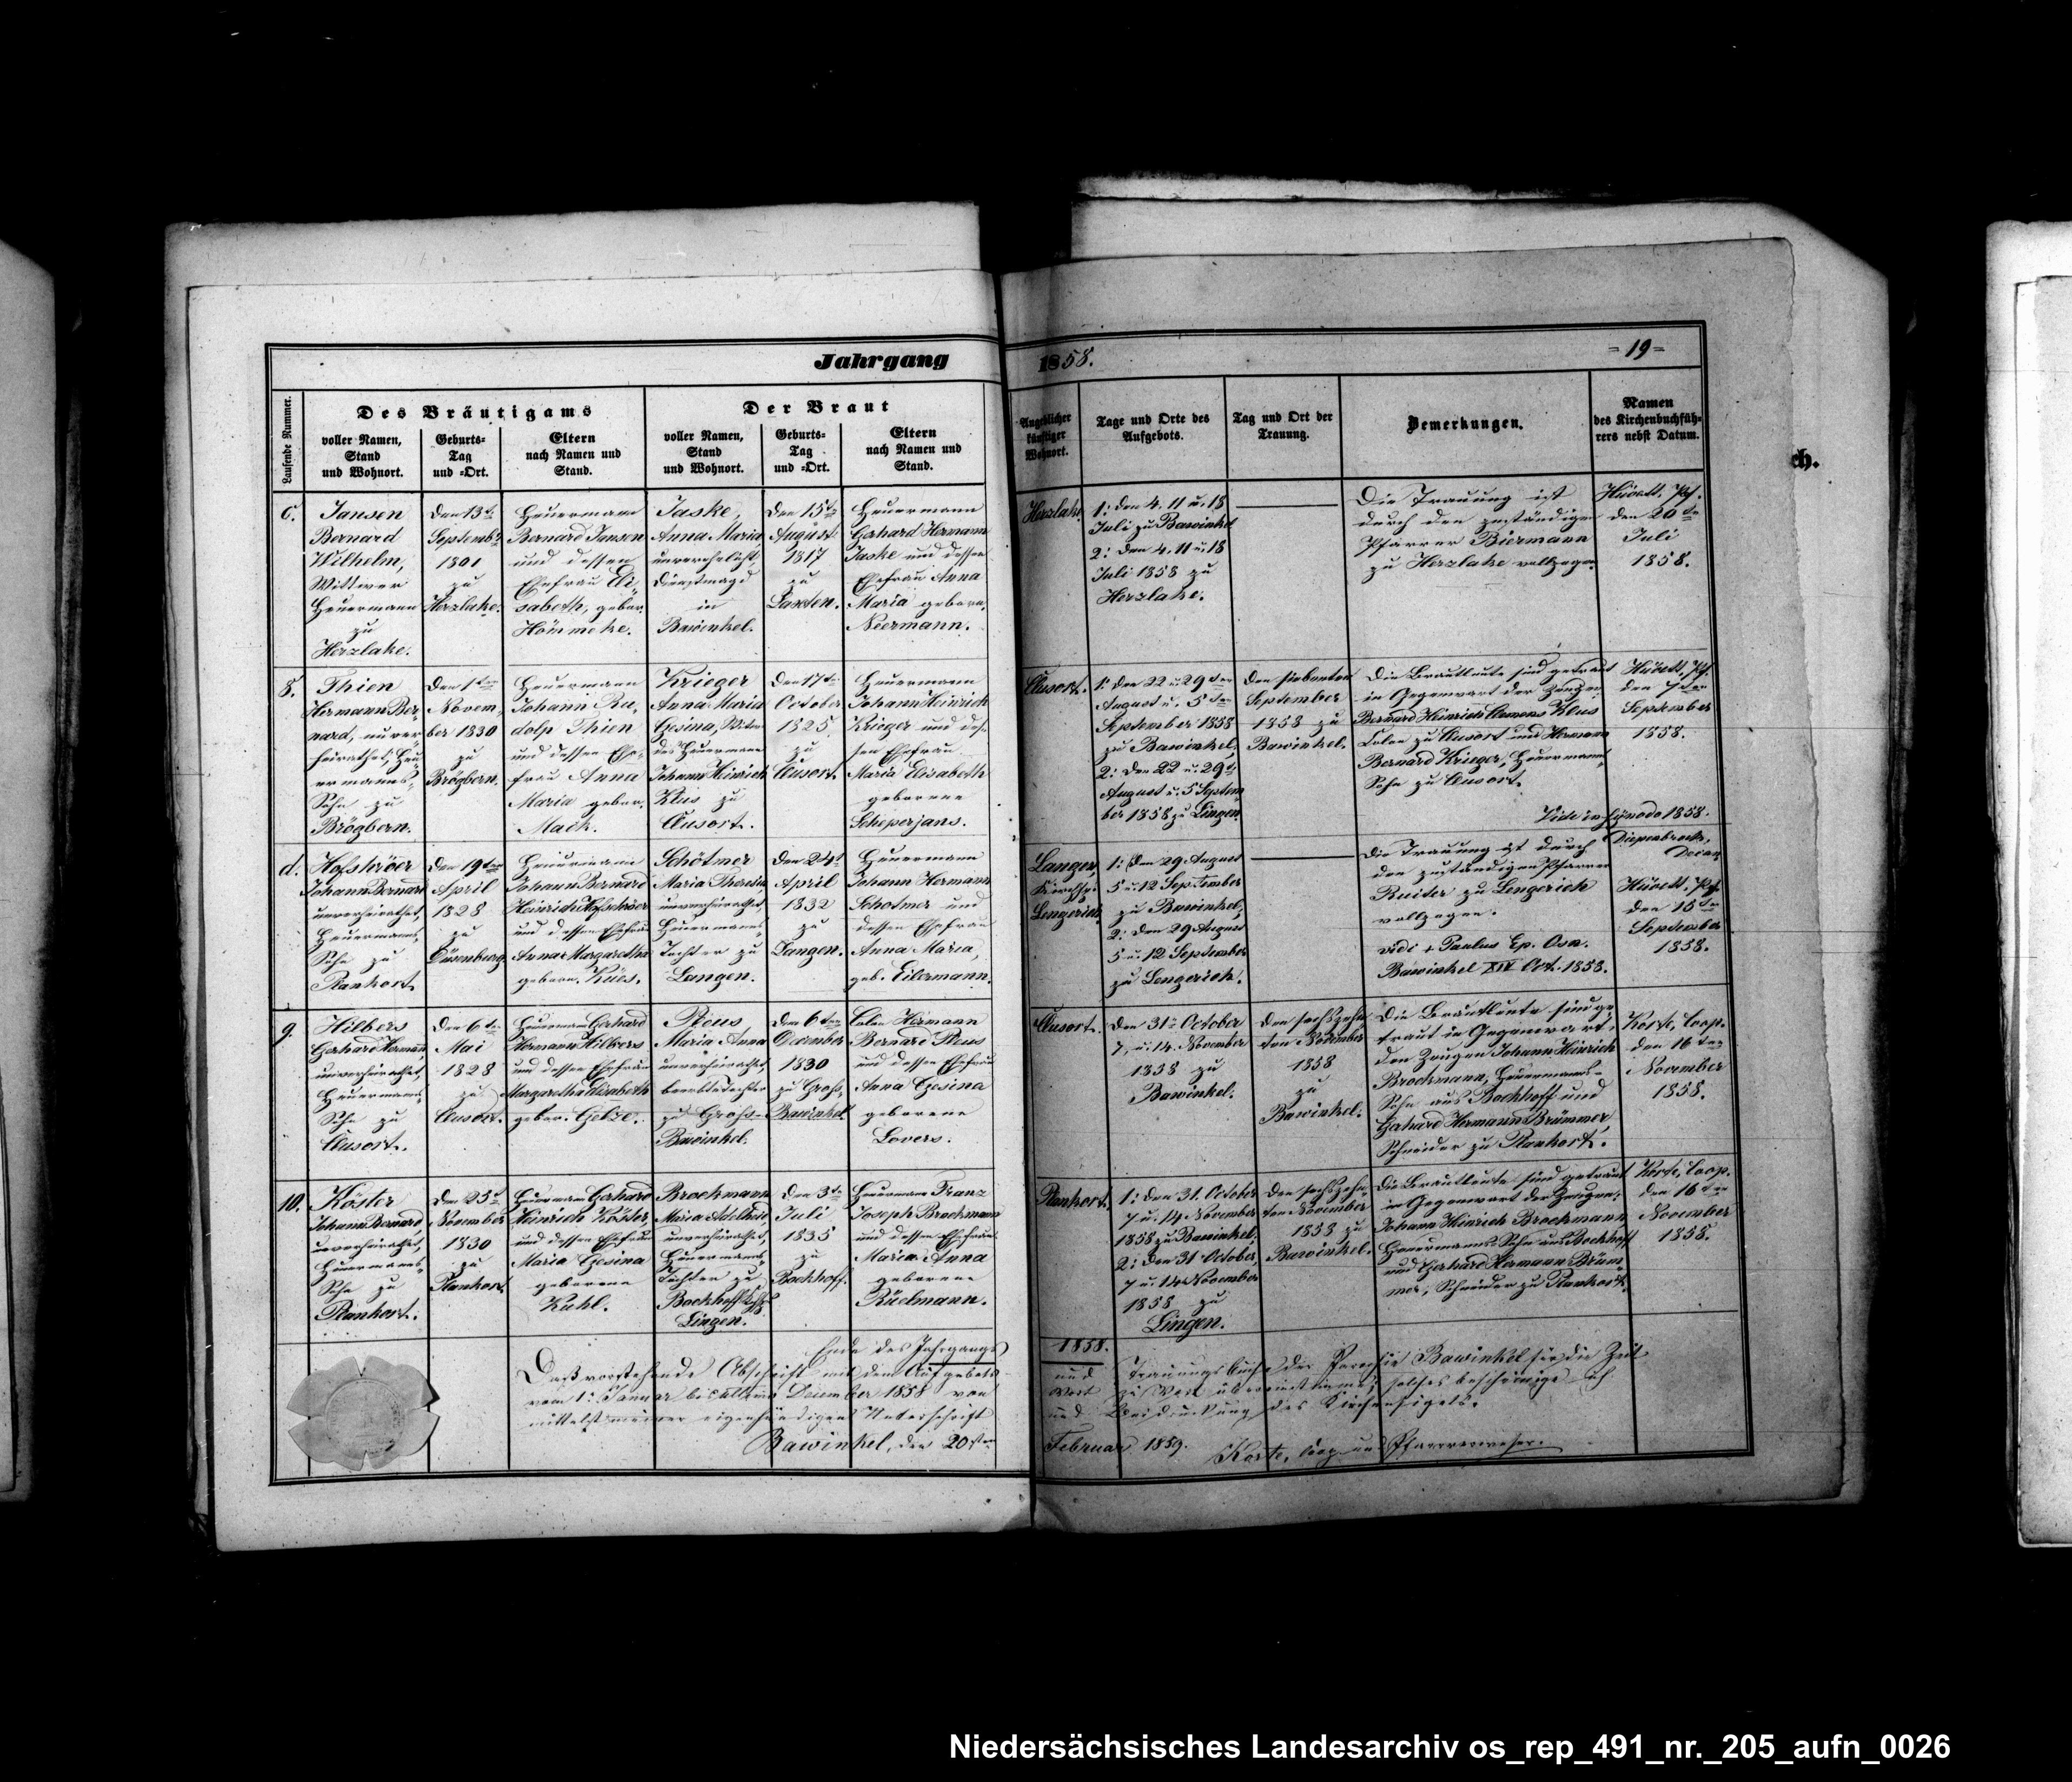 Jahrgang 1858.
=19=
Laufende Nummer.
Des Bräutigams
voller Namen,
Stand
und Wohnort.
Geburts=
Tag
und =Ort.
Eltern
nach Namen und
Stand.
Der Braut
voller Namen,
Stand
und Wohnort.
Geburts=
Tag
und =Ort.
Eltern
nach Namen und
Stand.
Angeblicher
künftiger
Wohnort.
Tage und Orte des
Aufgebots.
Tag und Ort der
Trauung.
Bemerkungen.
Namen
des Kirchenbuchfüh=
rers nebst Datum.
c.
Jansen
Bernard
Wilhelm,
Wittwer
Heuermann
zu
Herzlake.
Den 13ten
Septembr
1801
zu
Herzlake.
Heuermann
Bernard Jansen
und dessen
Ehefrau Eli=
sabeth, gebor.
Hömmeke.
Jaske,
Anna Maria
unverehelicht,
Dienstmagd
in
Bawinkel.
Den 15ten
August
1817
zu
Laxten.
Heuermann
Gerhard Hermann
Jaske und dessen
Ehefrau Anna
Maria geborn.
Neermann.
Herzlake
1: den 4. 11 u. 18
Juli zu Bawinkel
2: den 4. 11 u. 18
Juli 1858 zu
Herzlake.
Die Trauung ist
durch den zuständigen
Pfarrer Biermann
zu Herzlake vollzogen
Hüvett, Pf.
den 20ten
Juli
1858.
8.
Thien
Hermann Ber=
nard, unver=
heirathet, Heu=
ermanns=
Sohn zu
Brögbern.
Den 1ten
Novem=
ber 1830
zu
Brögbern.
Heuermann
Johann Ru=
dolp Thien
und dessen Ehe=
frau Anna
Maria gebor.
Mack.
Krieger
Anna Maria
Gesina, Witwe
des Heuermann
Johann Heinrich
Klus zu
Clusort.
Den 17ten
October
1825
zu
Clusort.
Heuermann
Johann Heinrich
Krieger und des=
sen Ehefrau
Maria Elisabeth
geborene
Scheperjans.
Clusort.
1: den 22 u. 29ten
August u. 5ten
September 1858
zu Bawinkel;
2: den 22 u. 29ten
August u. 5 Septem=
ber 1858 zu Lingen
Den siebenten
September
1858 zu
Bawinkel.
Die Brautleute sind getraut
in Gegenwart der Zeugen
Bernard Heinrich Clemens Klus
Colon zu Clusort und Hermann
Bernard Krieger, Heuermanns
Sohn zu Clusort.
Vide in Synodo 1858.
Diepenbrock,
Decan
Hüvett, Pf.
den 7ten
September
1858.
d.
Hofschröer
Johann Bernard
unverheirathet,
Heuermanns=
Sohn zu
Plankort
Den 19ten
April
1828
zu
Düsenburg
Heuermann
Johann Bernard
Heinrich Hofschröer
und dessen Ehefrau
Anna Margaretha
geborn. Kües.
Schötmer
Maria Theresia,
unverheirathet,
Heuermanns=
Tochter zu
Langen.
Den 24t
April
1832
zu
Langen.
Heuermann
Johann Hermann
Schotmer und
dessen Ehefrau
Anna Maria,
geb. Eilermann.
Langen,
Kirchsp.
Lengerich.
1: den 29. August
5 u. 12 September
zu Bawinkel;
2: den 29 August
5 u. 12 September
zu Lengerich.
Die Trauung ist durch
den zuständigen Pfarrer
Ruiter zu Lengerich
vollzogen.
vidi + Paulus Ep. Osn.
Bawinkel XIV Oct. 1858.
Hüvett, Pf.
den 15ten
September
1858.
9.
Hilbers
Gerhard Hermann,
unverheirathet,
Heuermanns=
Sohn zu
Clusort.
Den 6ten
Mai
1828
zu
Clusort.
Heuermann Gerhard
Hermann Hilbers
und dessen Ehefrau
Margaretha Elisabeth
gebor. Gelze.
Pleus
Maria Anna
unverheirathet
beerbte Tochter
zu Gross=
Bawinkel.
Den 6ten
December
1830
zu Gross=
Bawinkel
Colon Hermann
Bernard Pleus
und dessen Ehefrau
Anna Gesina
geborene
Lovers.
Clusort.
Den 31ten October
7. u. 14. November
1858 zu
Bawinkel.
Den sechszehn=
ten November
1858
zu
Bawinkel.
Die Brautleute sind ge=
traut in Gegenwart
den Zeugen Johann Heinrich
Brockmann, Heuermanns=
Sohn aus Bockhoff und
Gerhard Hermann Brümmer,
Schneider zu Plankort.
Korte, Coop.
den 16ten
November
1858.
10.
Köster
Johann Bernard,
unverheirathet,
Heuermanns=
Sohn zu
Plankort.
Den 25t
November
1830
zu
Plankort.
Heuermann Gerhard
Heinrich Köster
und dessen Ehefrau
Maria Gesina
geborene
Kuhl.
Brockmann
Maria Adelheid,
unverheirathet,
Heuermanns=
Tochter zu
Bockhoff Kchsp
Lingen.
Den 3ten
Juli
1835
zu
Bockhoff.
Heuermann Franz
Joseph Brockmann
und dessen Ehefrau
Maria Anna
geborene
Rüelmann.
Plankort.
1: den 31. October
7 u. 14 November
1858 zu Bawinkel;
2: den 31 October,
7 u. 14 November
1858 zu
Lingen.
Den sechszehn=
ten November
1858 zu
Bawinkel.
Die Brautleute sind getraut
in Gegenwart der Zeugen,
Johann Heinrich Brockmann
Heuermanns Sohn aus Bockhoff
und Gerhard Hermann Brüm=
mer, Schneider zu Plankort.
Korte, Coop.
den 16ten
November
1858.
Ende des Jahrgangs 1858.
Daß vorstehende Abschrift mit dem Aufgebots und Trauungsbuche der Pfarochie Bawinkel für die Zeit
vom 1: Januar bis ultimo December 1858 von Wort zu Wort übereinstimme; solches bescheinige ich
mittelst meiner eigenhändigen Unterschrift und Beidrückung des Kirchensigels.
Bawinkel, den 20sten Februar 1859.
Korte, Coop. und Pfarrverweser.
ch.
Niedersächsisches Landesarchiv os_rep_491_nr._205_aufn_0026